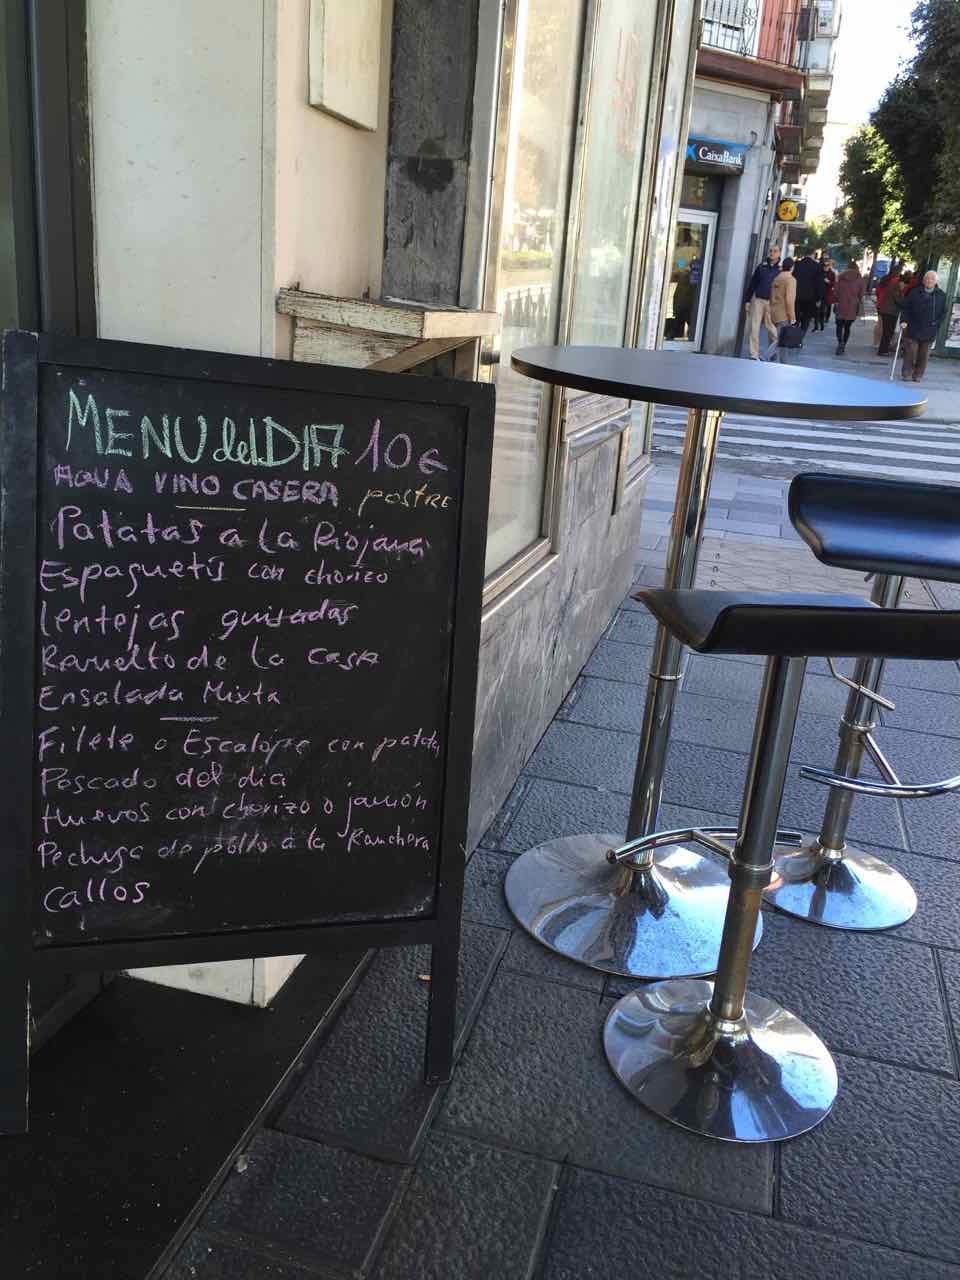 MENU del DIA 10€
AGUA VINO CASERA postRE
Patatas a la Riojana
Espaguetis con chorizo
lentejas guisadas
Revuelto de la casa
Ensalada Mixta
Filete o Escalope con patatas
Pescado del dia
Huevos con chorizo o jamón
Pechuga de pollo a la Ranchera
Callos
CaixaBank